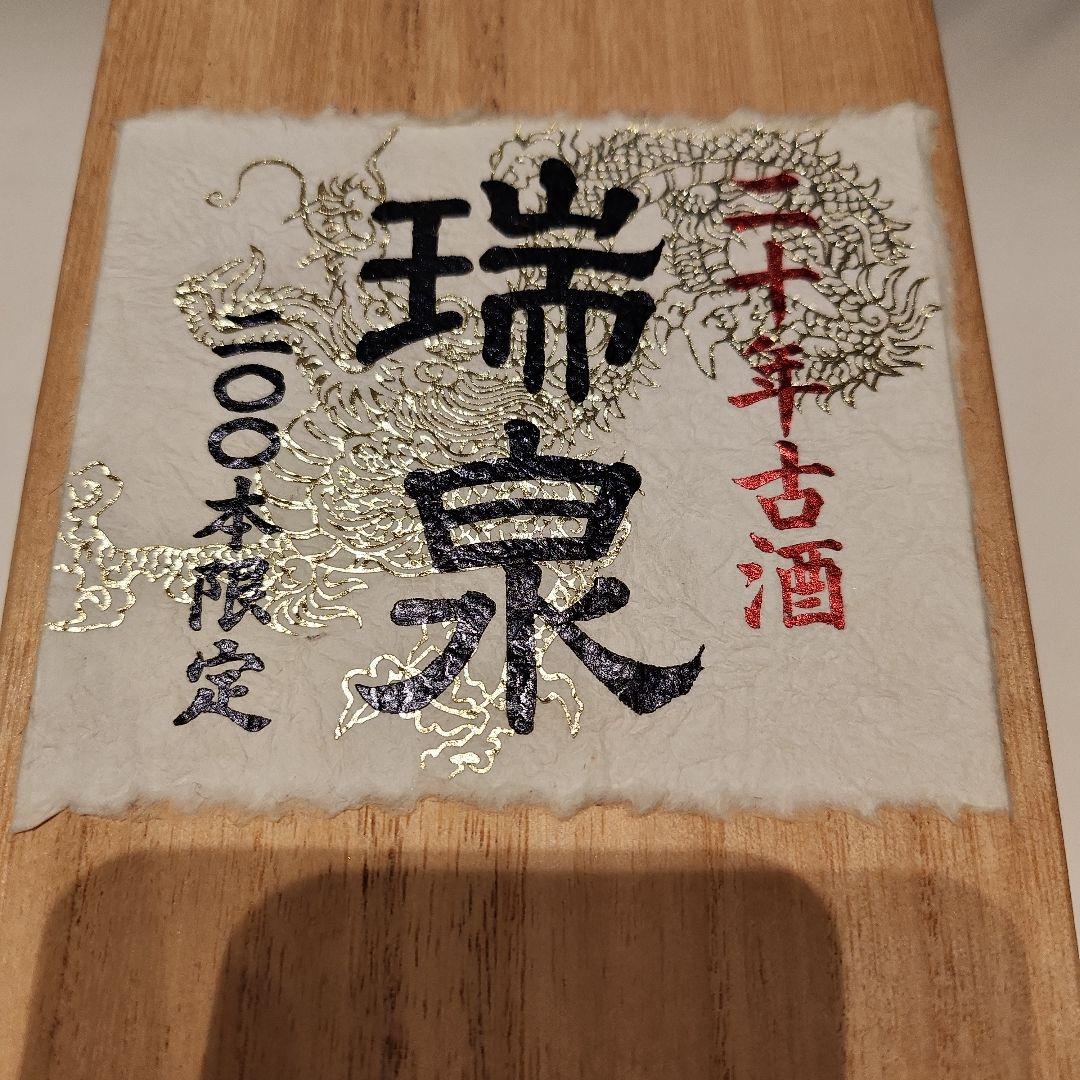 二十年古酒
瑞泉
二〇〇本限定